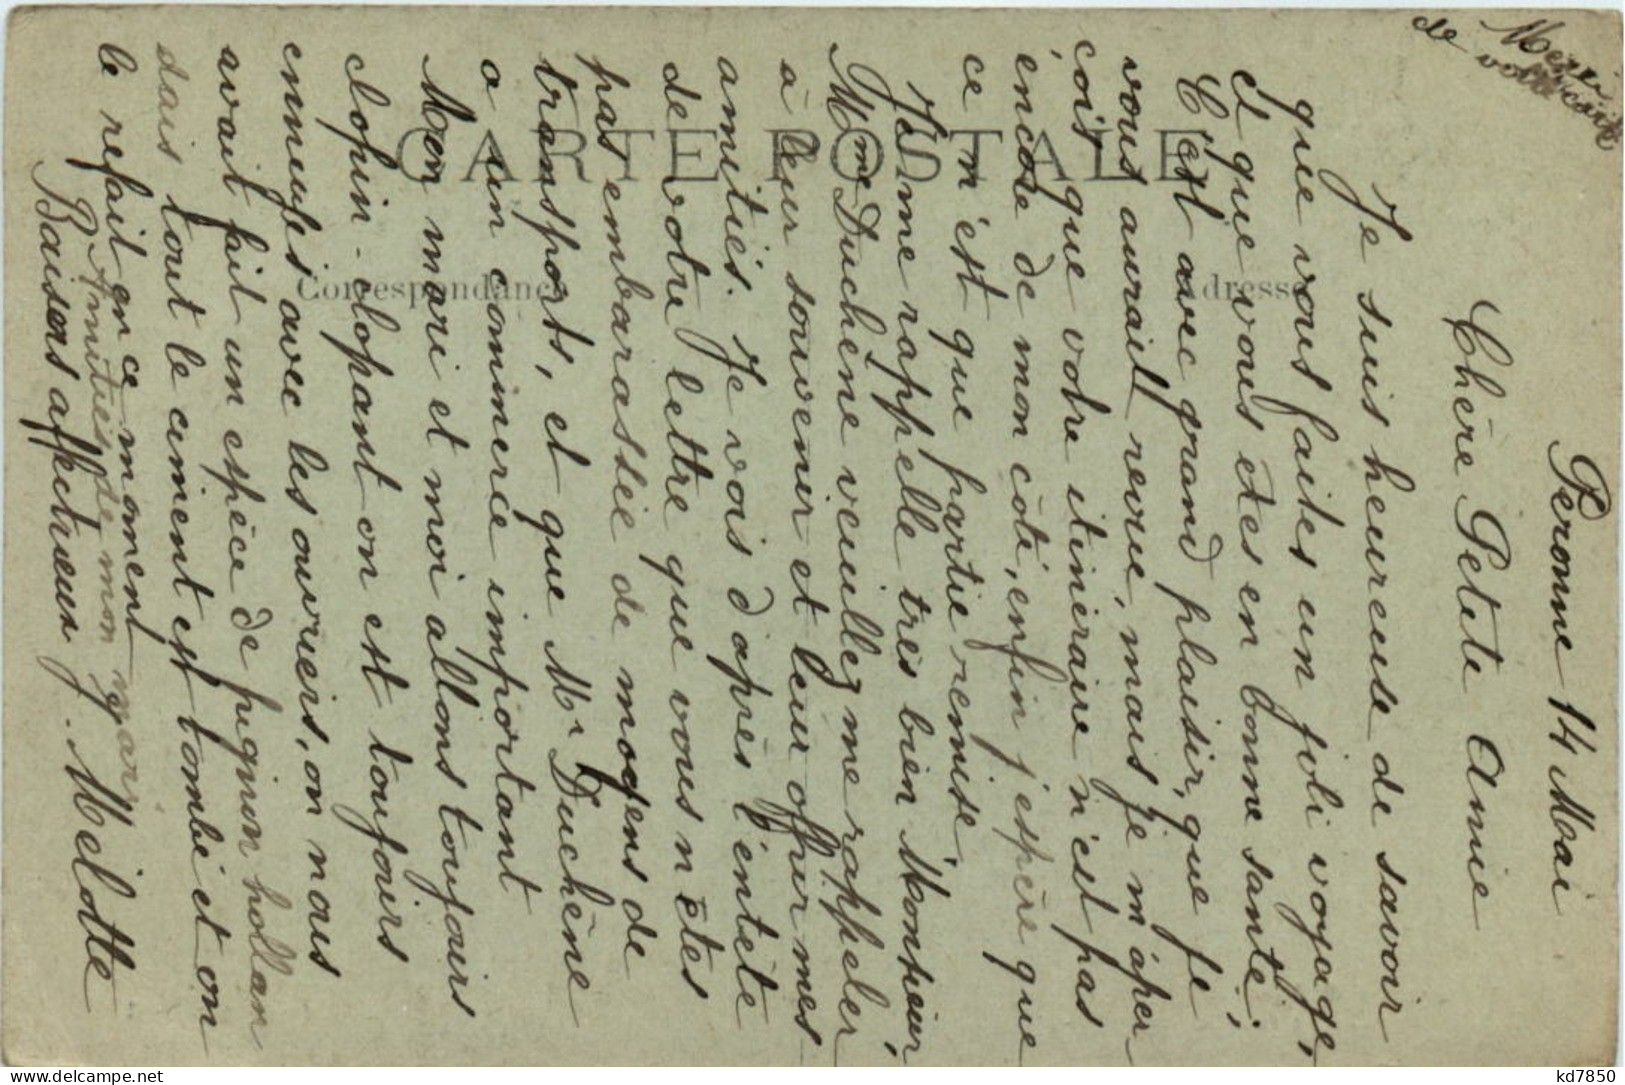 Merci
de votre carte
Peronne 14 Mai
Chère Petite Amie
Je suis heureuse de savoir
que vous faites un joli voyage,
et que vous êtes en bonne santé,
C'est avec grand plaisir, que je
vous aurait revue, mais je m'aper
çois que votre itinéraire n'est pas
encore de mon côté, enfin j'espère que
ce n'est que partie remise.
Je me rappelle très bien Monsieur,
Mme Duchêne veuillez me rappeler
à leur souvenir et leur offrir mes
amitiés. Je vois d'après l'entête
de votre lettre que vous n'êtes
pas embarassée de moyens de
transports, et que Mr Duchêne
a un commerce important
Mon mari et moi allons toujours
clopin-clopant on est toujours
ennuyés avec les ouvriers, on nous
avait fait un espèce de pignon hollan
dais tout le ciment est tombé et on
le refait en ce moment
Amitiés de mon mari
Baisers affectueux. Mélotte
CARTE POSTALE
Correspondance
Adresse
kd7850